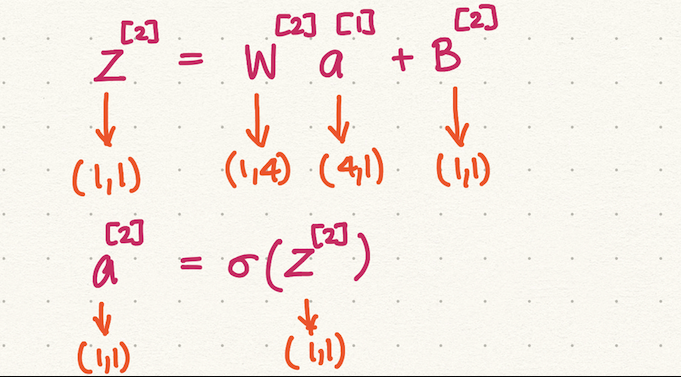 Z^[2] = W^[2] a^[1] + B^[2]
(1,1) (1,4) (4,1) (1,1)
a^[2] = σ(Z^[2])
(1,1) (1,1)